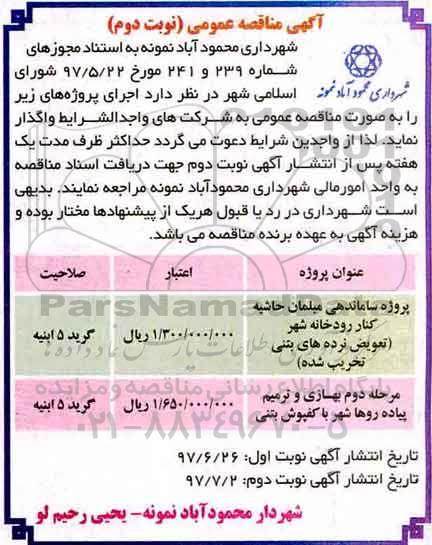 آگهی مناقصه عمومی (نوبت دوم)
شهرداری محمودآباد نمونه
شهرداری محمودآباد نمونه به استناد مجوزهای
شماره ۲۳۹ و ۲۴۱ مورخ ۹۷/۵/۲۲ شورای
اسلامی شهر در نظر دارد اجرای پروژه‌های زیر
را به صورت مناقصه عمومی به شرکت های واجدالشرایط واگذار
نماید. لذا از واجدین شرایط دعوت می گردد حداکثر ظرف مدت یک
هفته پس از انتشار آگهی نوبت دوم جهت دریافت اسناد مناقصه
به واحد امورمالی شهرداری محمودآباد نمونه مراجعه نمایند. بدیهی
است شهرداری در رد یا قبول هریک از پیشنهادها مختار بوده و
هزینه آگهی به عهده برنده مناقصه می باشد.
عنوان پروژه اعتبار صلاحیت
پروژه ساماندهی مبلمان حاشیه
کنار رودخانه شهر
(تعویض نرده های بتنی
تخریب شده)
۱/۳۰۰/۰۰۰/۰۰۰ ریال گرید ۵ ابنیه
مرحله دوم بهسازی و ترمیم
پیاده روها شهر با کفپوش بتنی
۱/۶۵۰/۰۰۰/۰۰۰ ریال گرید ۵ ابنیه
پایگاه اطلاع رسانی مناقصه و مزایده
تاریخ انتشار آگهی نوبت اول: ۹۷/۶/۲۶
تاریخ انتشار آگهی نوبت دوم: ۹۷/۷/۲
شهردار محمودآباد نمونه- یحیی رحیم لو